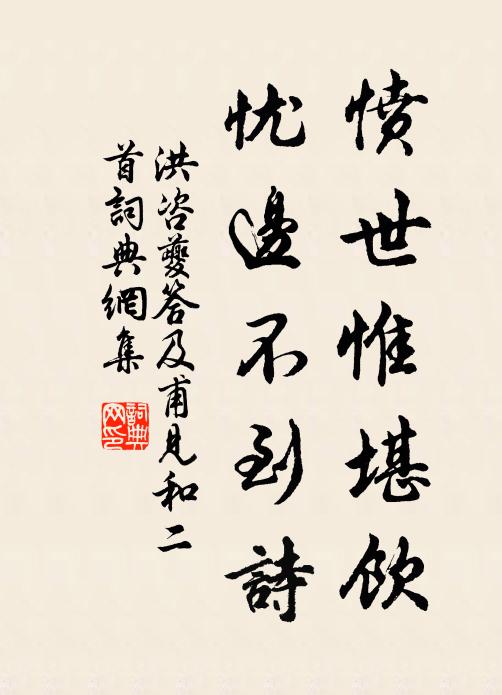 憤世惟堪飲
忧邊不到詩
洪咨夔答及甫見和二
首詞典網集
詞典
网印